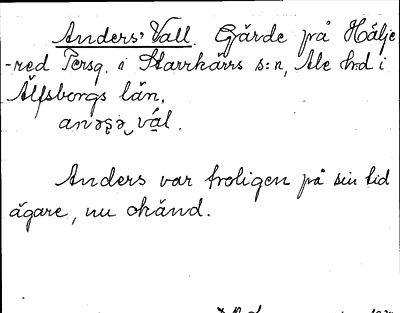 Anders' Vall. Gärde på Hälje-
-red Persg. i Starrkärrs s:n, Ale hd i
Älfsborgs län.
Anders var troligen på sin tid
ägare, nu okänd.